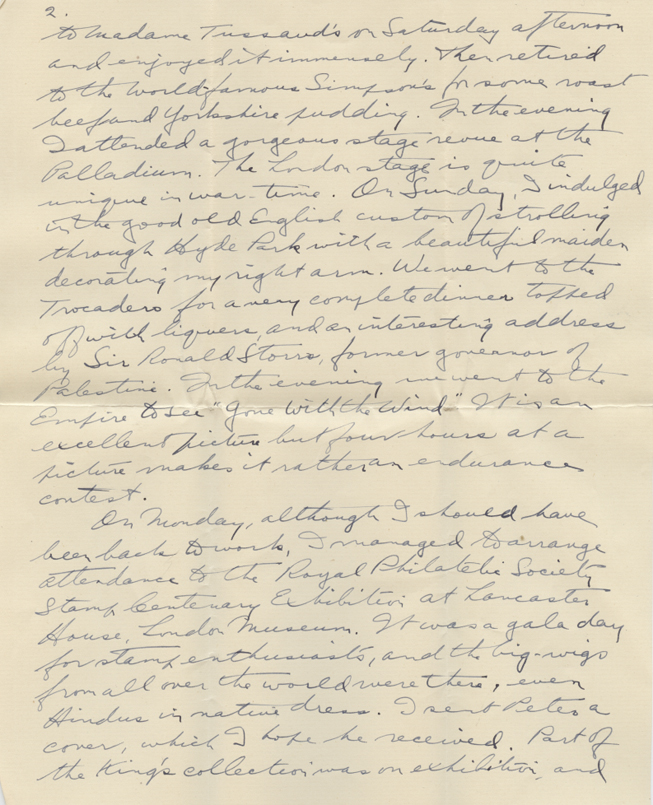 2.
to Madame Tussaud's on Saturday afternoon
and enjoyed it immensely. Then retired
to the world-famous Simpson's for some roast
beef and Yorkshire pudding. In the evening
I attended a gorgeous stage revue at the
Palladium. The London stage is quite
unique in war-time. On Sunday, I indulged
in the good old English custom of strolling
through Hyde Park with a beautiful maiden
decorating my right arm. We went to the
Trocadero for a very complete dinner topped
off with liquers, and an interesting address
by Sir Ronald Storrs, former governor of
Palestine. In the evening we went to the
Empire to see "Gone With the Wind" It is an
excellent picture but four hours at a
picture makes it rather an endurance
contest.
On Monday, although I should have
been back to work, I managed to arrange
attendance to the Royal Philatelic Society
Stamp Centenary Exhibition at Lancaster
House, London Museum. It was a gala day
for stamp enthusiasts, and the big-wigs
from all over the world were there, even
Hindus in native dress. I sent Peter a
cover, which I hope he received. Part of
the King's collection was on exhibition, and